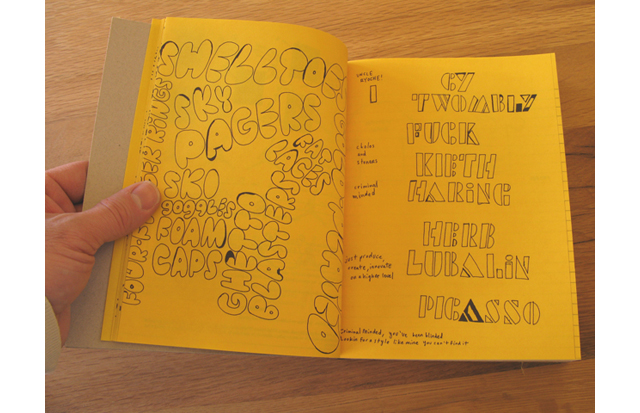 SHELLTOE
SKY
PAGERS
SKI
goggles
FOAM
CAPS
RINGS
GHETTO
BLASTERS
FAT
LACES
1
CY
TWOMBLY
FUCK
KIETH
HARiNG
and
criminal
minded
HERB
LUBALiN
produce,
create, innovate
on a higher level
PICASSO
Criminal Minded, you've been blinded
Lookin for a style like mine you can't find it